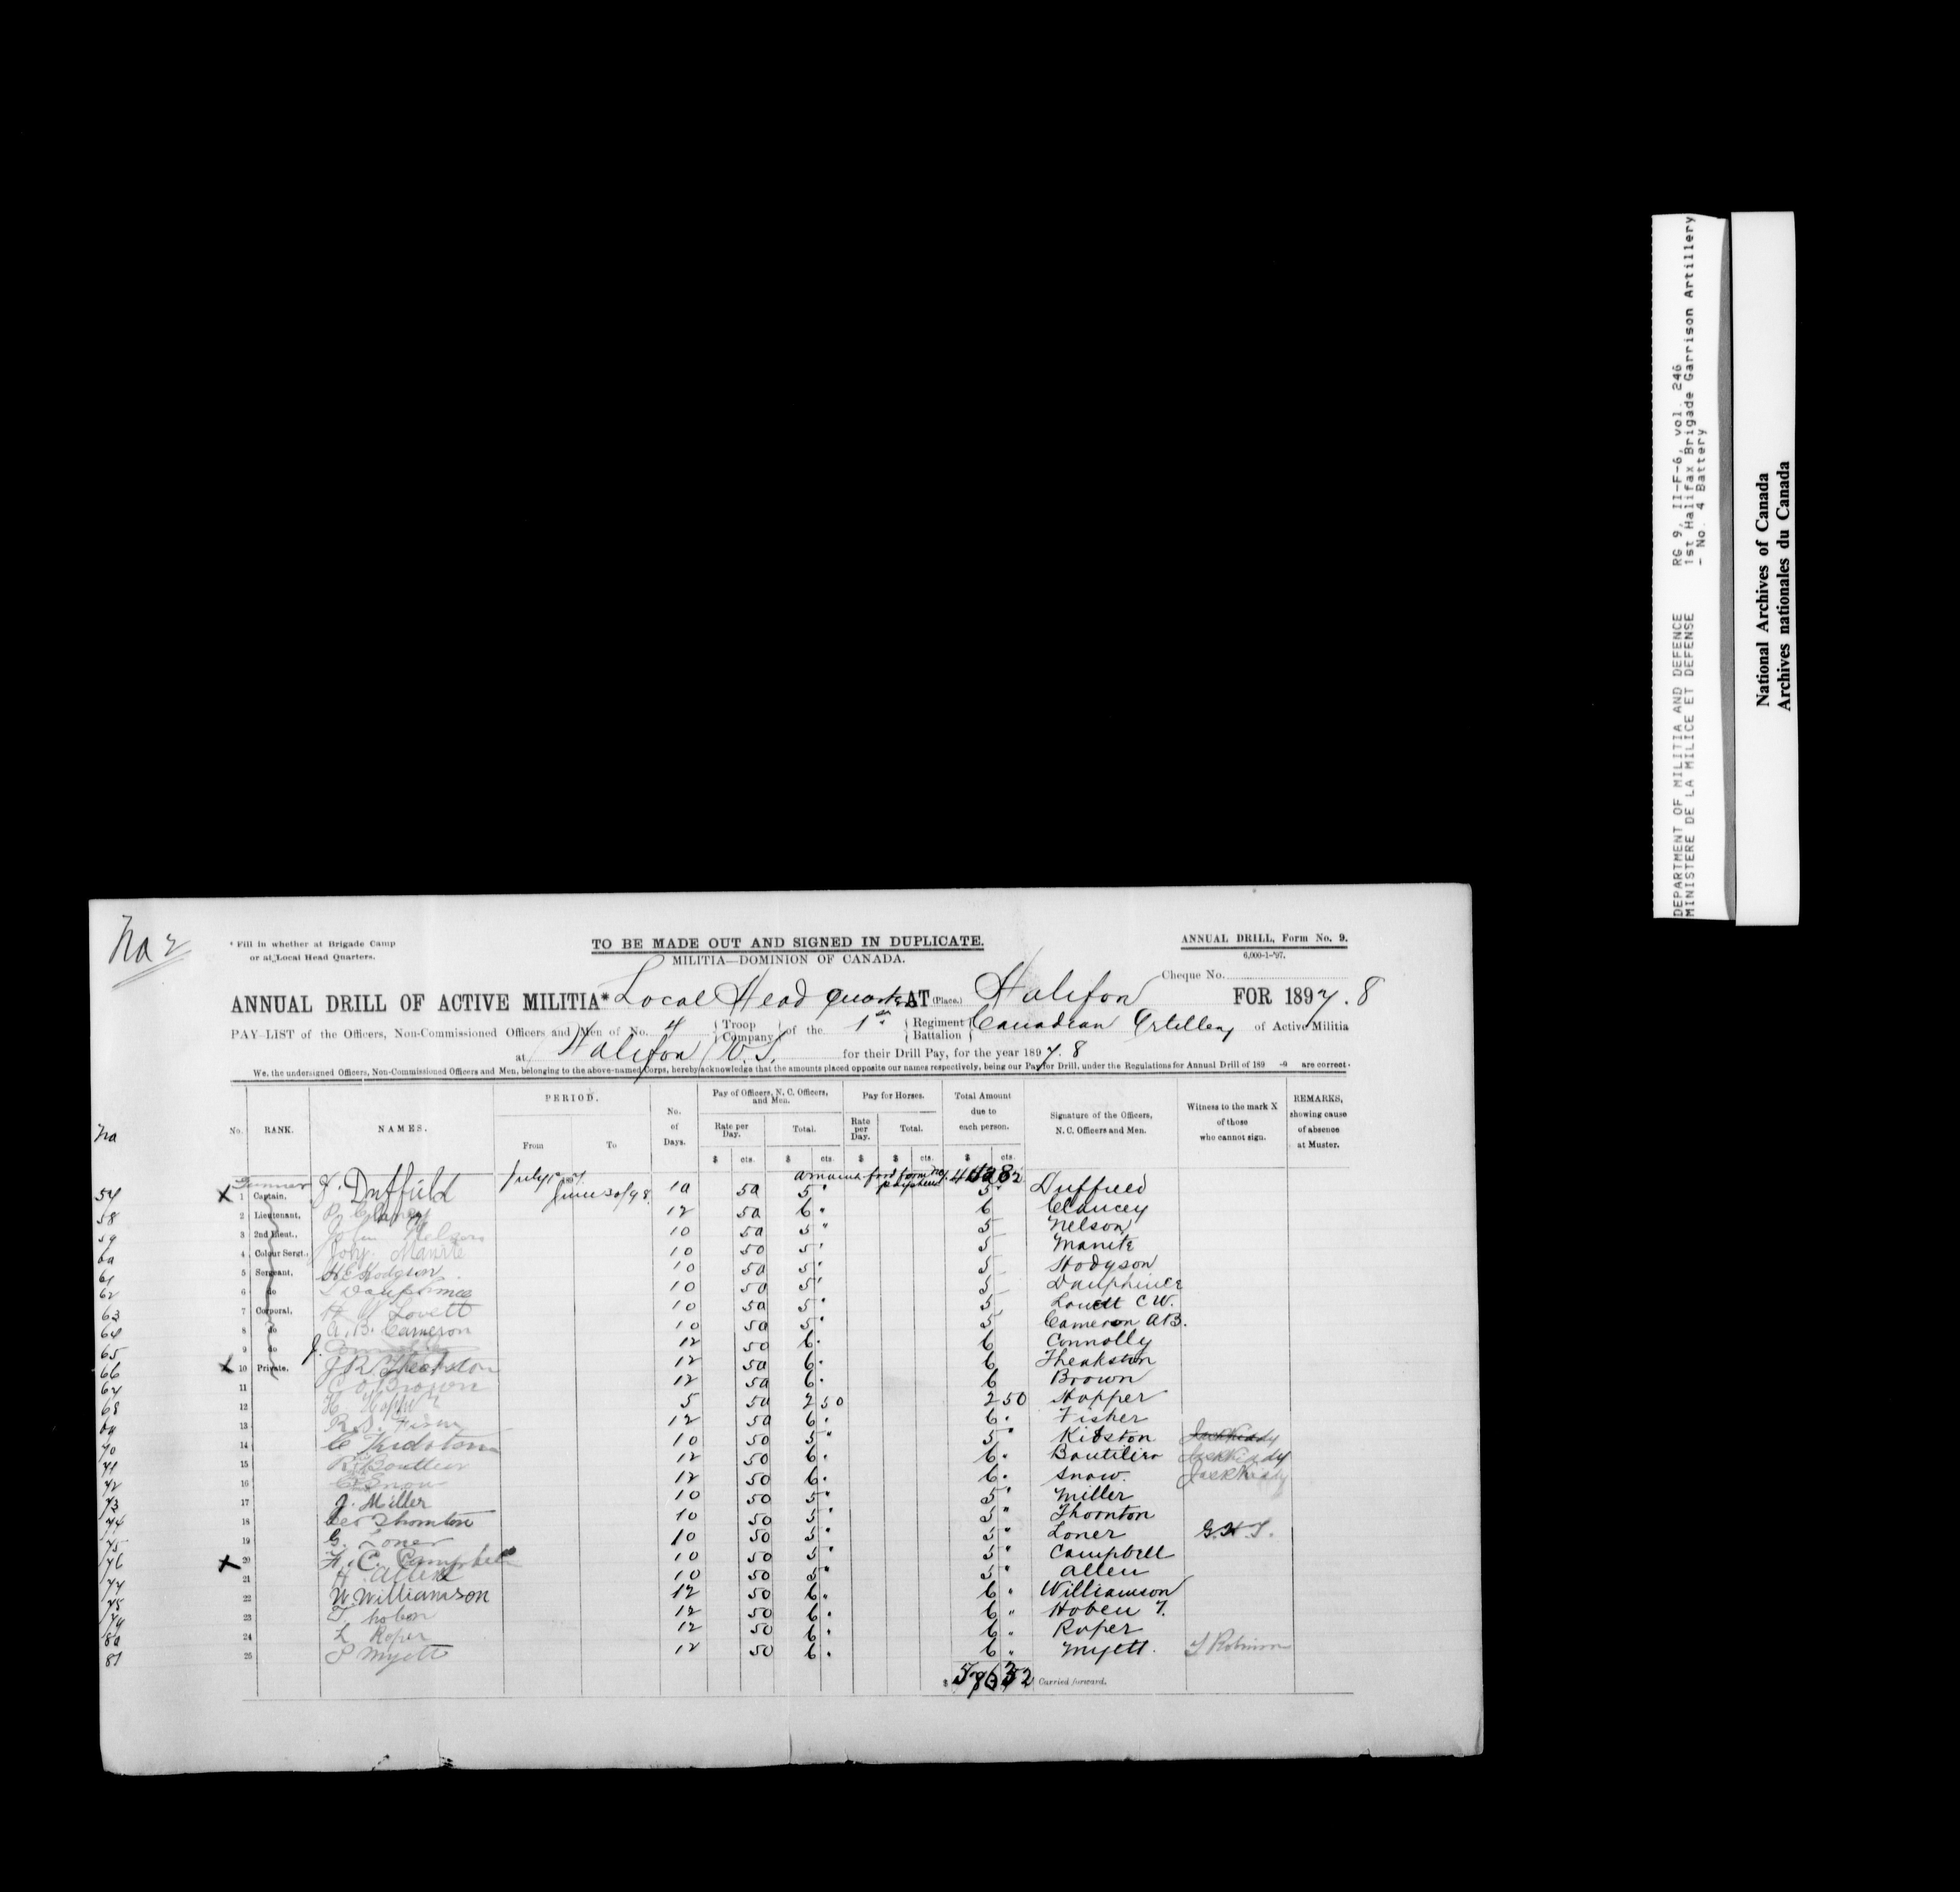 DEPARTMENT OF MILITIA AND DEFENCE RG 9, II-F-6, vol. 246
MINISTERE DE LA MILICE ET DEFENSE 1st Halifax Brigade Garrison Artillery
- No. 4 Battery
National Archives of Canada
Archives nationales du Canada
No 2
* Fill in whether at Brigade Camp
or at Local Head Quarters.
TO BE MADE OUT AND SIGNED IN DUPLICATE.
MILITIA—DOMINION OF CANADA.
ANNUAL DRILL, Form No. 9.
6,000-1-'97.
Cheque No.
ANNUAL DRILL OF ACTIVE MILITIA* Local Head Quarters AT (Place.) Halifax FOR 1897.8
PAY-LIST of the Officers, Non-Commissioned Officers and Men of No. 4 { Troop Company } of the 1st { Regiment Battalion } Canadian Artillery of Active Militia
at Halifax N.S. for their Drill Pay, for the year 1897.8
We, the undersigned Officers, Non-Commissioned Officers and Men, belonging to the above-named Corps, hereby acknowledge that the amounts placed opposite our names respectively, being our Pay for Drill, under the Regulations for Annual Drill of 189 -9 are correct.
No. RANK. NAMES. PERIOD. From To No. of Days. Pay of Officers, N. C. Officers, and Men. Rate per Day. Total. Pay for Horses. Rate per Day. Total. Total Amount due to each person. Signature of the Officers, N. C. Officers and Men. Witness to the mark X of those who cannot sign. REMARKS, showing cause of absence at Muster.
No
$ cts. $ cts. $ $ cts. $ cts.
Gunner July 1st 97 June 30/98
X 1 Captain, J. Duffield 10 50 5 " 5 " Duffield
58 2 Lieutenant, Clancey 12 50 6 " 6 Clancey
59 3 2nd Lieut., John Nelson 10 50 5 " 5 Nelson
60 4 Colour Sergt., 10 50 5 " 5
61 5 Sergeant, Hodgson 10 50 5 " 5 Hodgson
62 6 do Dauphinee 10 50 5 " 5 Dauphinee
63 7 Corporal, Lovett 10 50 5 " 5 Lovett C W.
64 8 do A. B. Cameron 10 50 5 " 5 Cameron AB.
65 9 do J. 12 50 6 " 6 Connolly
66 X 10 Private, J R Theakston 12 50 6 " 6 Theakston
67 11 Brown 12 50 6 " 6 Brown
68 12 H Hopper 5 50 2 50 2 50 Hopper
69 13 12 50 6 " 6 " Fisher
70 14 C Kidston 10 50 5 " 5 " Kidston
71 15 R Boutilier 12 50 6 " 6 " Boutilier
72 16 Snow 12 50 6 " 6 " Snow.
73 17 J. Miller 10 50 5 " 5 " Miller
74 18 Geo Thornton 10 50 5 " 5 " Thornton
75 19 G. Loner 10 50 5 " 5 " Loner
76 X 20 H. C. Campbell 10 50 5 " 5 " Campbell
77 21 H Allen 10 50 5 " 5 " Allen
78 22 W Williamson 12 50 6 " 6 " Williamson
79 23 T. hoben 12 50 6 " 6 " Hoben T.
80 24 L Roper 12 50 6 " 6 " Roper
81 25 Myett 12 50 6 " 6 " Myett. Robinson
$ Carried forward.